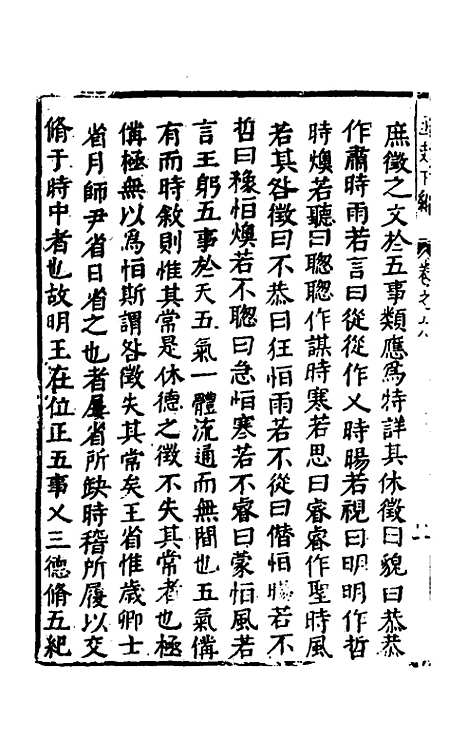 庶徵之文於五事類應爲特詳其休徵曰貌曰恭恭
作肅時雨若言曰從從作乂時暘若視曰明明作哲
時燠若聽曰聰聰作謀時寒若思曰睿睿作聖時風
若其咎徵曰不恭曰狂恒雨若不從曰僭恒暘若不
哲曰穅恒燠若不聰曰急恒寒若不睿曰蒙恒風若
言王躬五事於天五氣一體流通而無間也五氣備
有而時敘則惟其常是休德之徵不失其常者也極
備極無以爲恒斯謂咎徵失其常矣王省惟歲卿士
省月師尹省日省之也者屢省所缺時稽所履以交
脩于時中者也故明王在位正五事乂三德脩五紀
卷之六